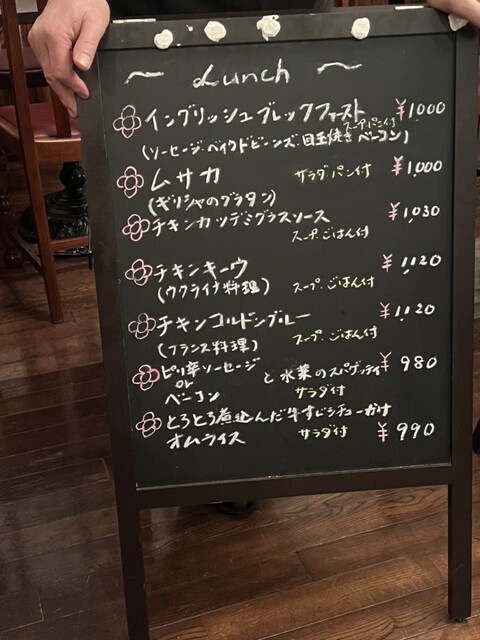 ~ Lunch ~
イングリッシュブレックファースト ¥1000
スープ、パン付
(ソーセージ、ベイクドビーンズ、目玉焼き、ベーコン)
ムサカ サラダ パン付 ¥1,000
(ギリシャのグラタン)
チキンカツデミグラスソース ¥1,030
スープ、ごはん付
チキンキーウ ¥1,120
(ウクライナ料理) スープ、ごはん付
チキンコルドンブルー ¥1,120
(フランス料理) スープ、ごはん付
ピリ辛ソーセージ
or と水菜のスパゲッティ ¥980
ベーコン サラダ付
とろとろ煮込んだ牛すじシチューがけ
オムライス サラダ付 ¥990